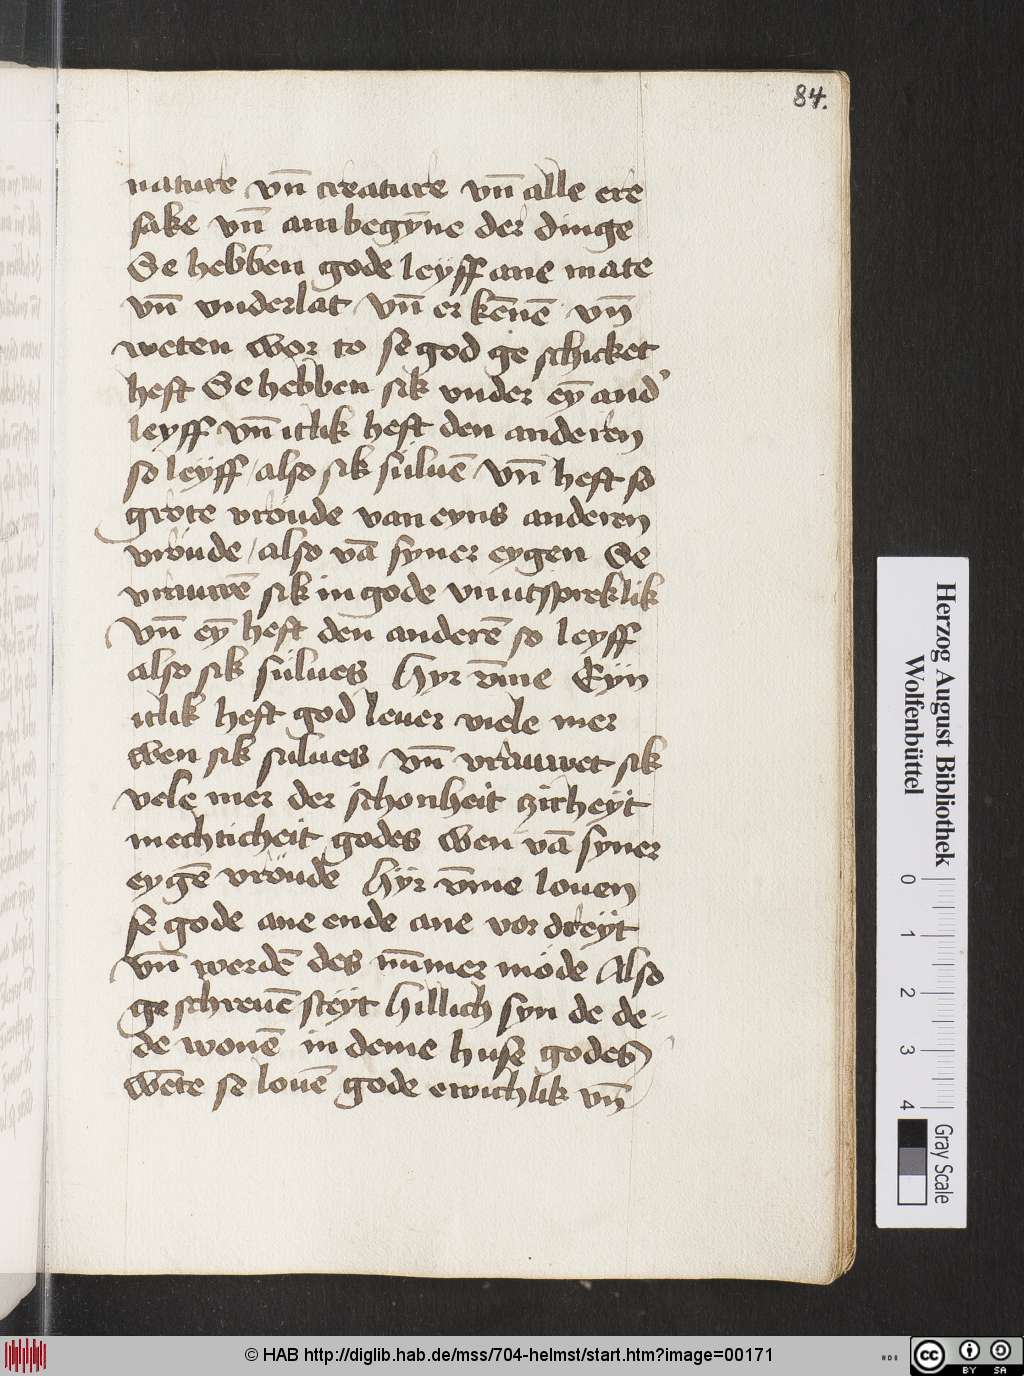 84.
nature vn̄ creature vn̄ alle ere
sake vn̄ ambegȳne der dinge
Se hebben gode leyff ane mate
vn̄ vnderlat vn̄ er kēnē vn̄
weten wor to se god ge schicket
heft Se hebben sik vnder eȳ and'
leyff vn̄ itlik heft den anderen
so leyff / also sik suluē vn̄ heft so
grote vroude van eyns anderen
vroude / also vā syner eygen Se
vrauwē sik in gode vnutspreklik
vn̄ eȳ heft den anderē so leyff
also sik sulues Hyr v̄me Eyn
itlik heft god leuer viele mer
wen sik sulues vn̄ vrauwet sik
vele mer der schonheit zirheyt
mechticheit godes wen vā syner
eygē vroude Hyr v̄me louen
se gode ane ende ane vor dreyt
vn̄ werdē des nūmer mode Also
ge schreuē steyt Hillich syn de de=
de wonē in deme huse godes
wēte se louē gode ewichlik vn̄
Herzog August Bibliothek
Wolfenbüttel
0 1 2 3 4
Gray Scale
© HAB http://diglib.hab.de/mss/704-helmst/start.htm?image=00171
cc
BY SA